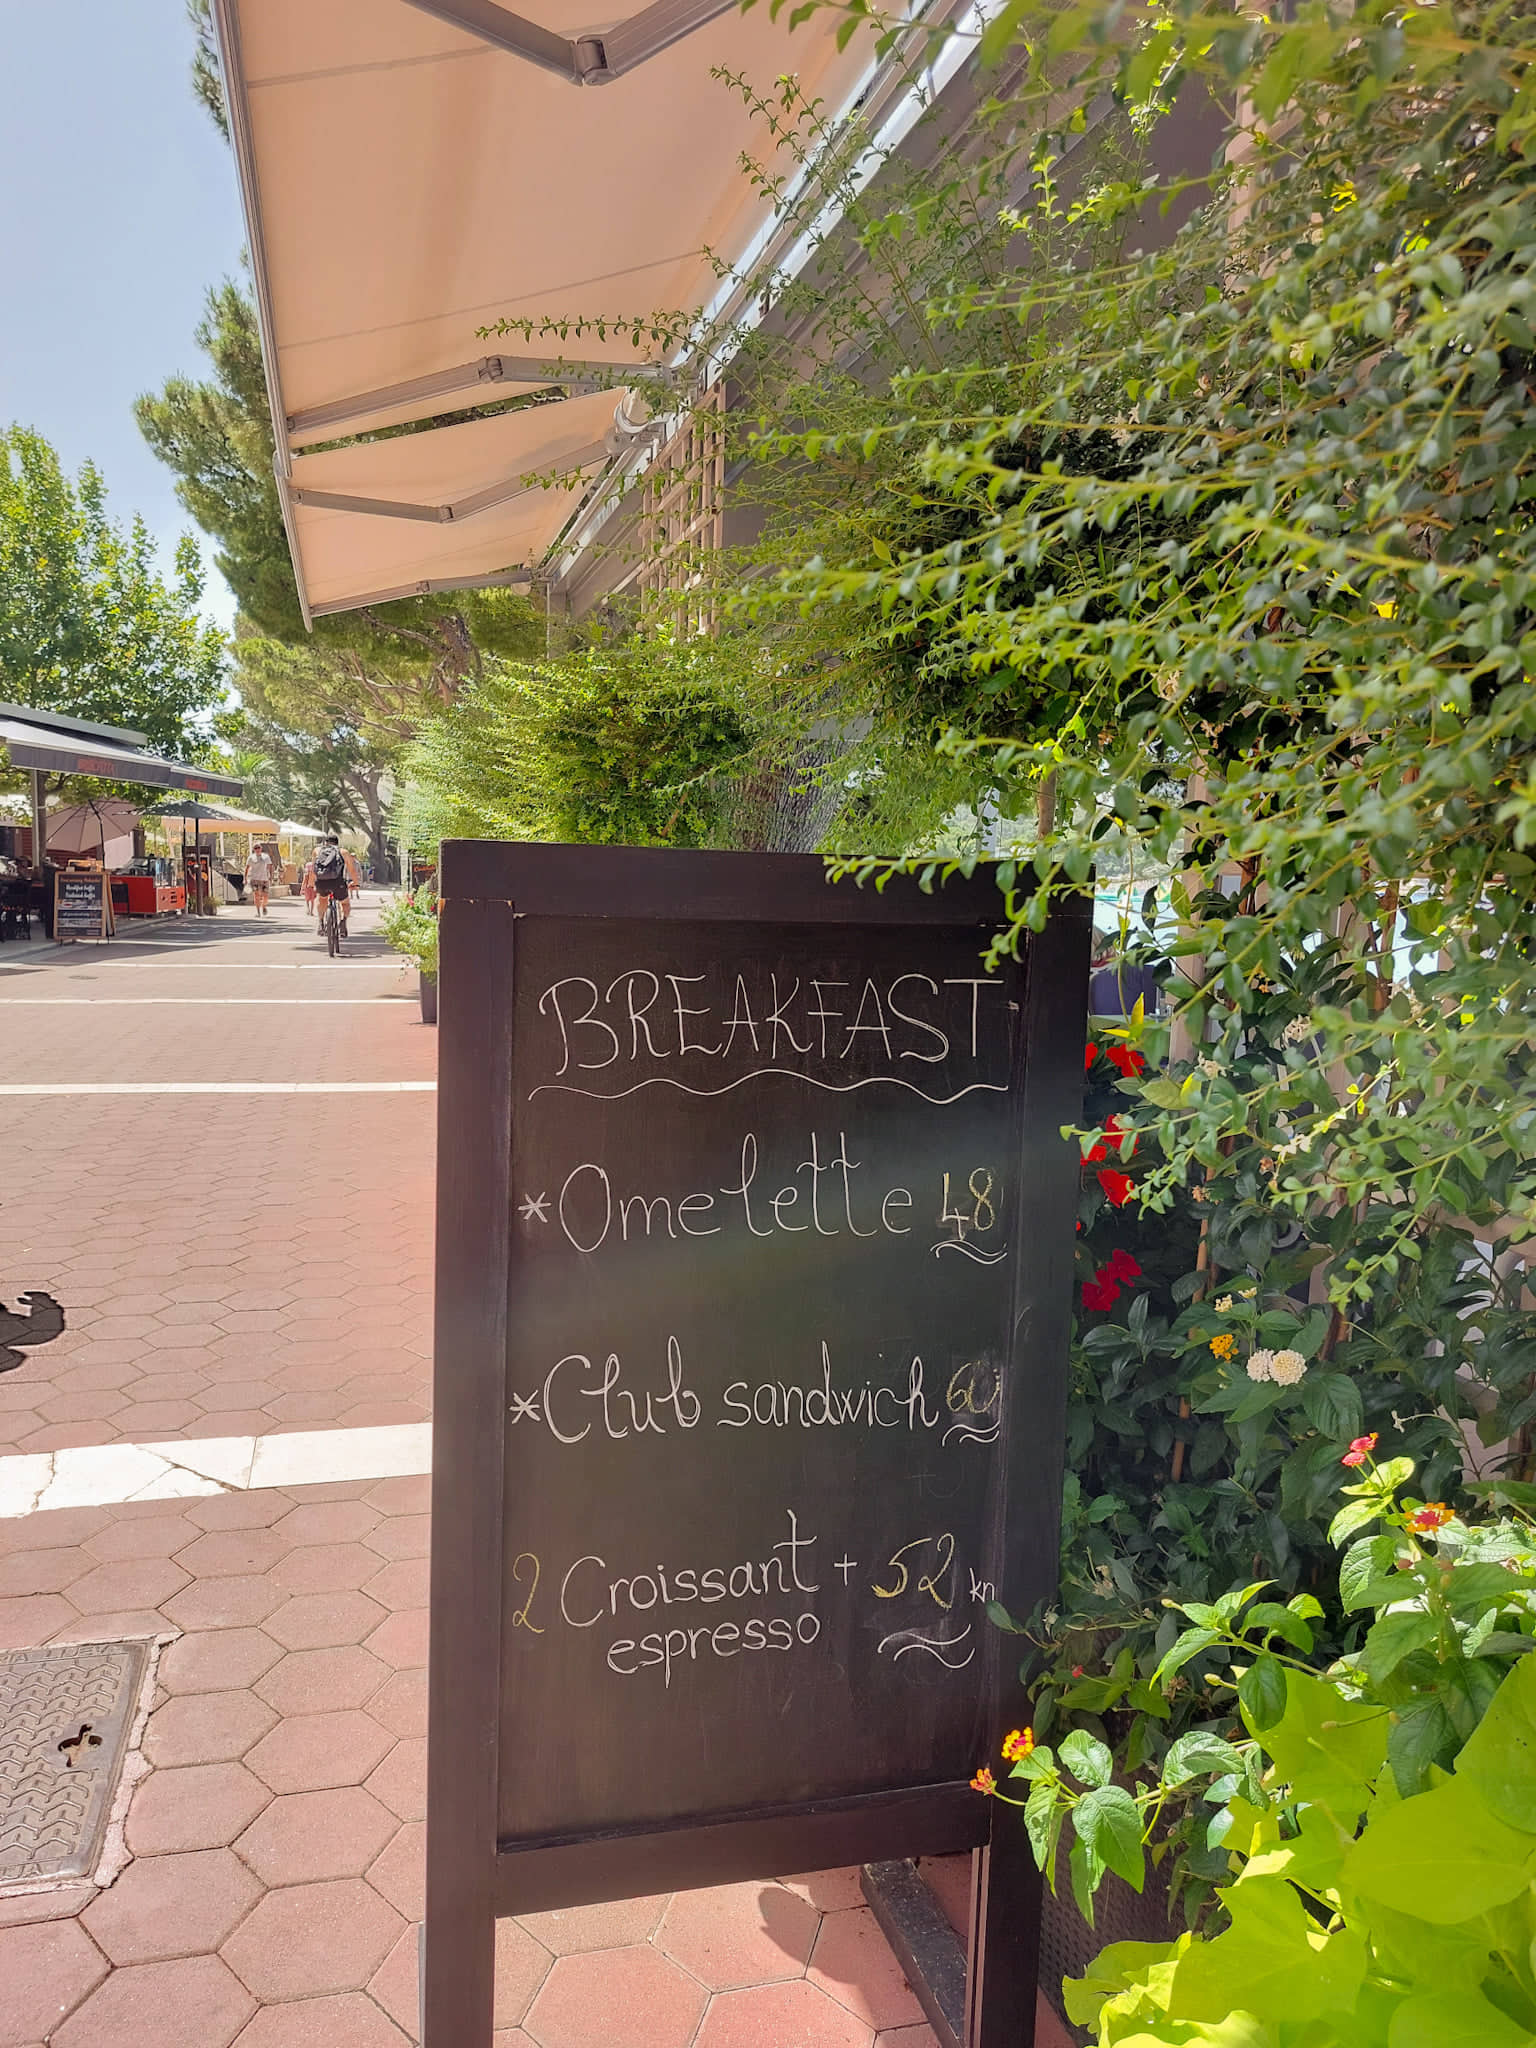 BREAKFAST
*Omelette 48
*Club sandwich 60
2 Croissant + 52 kn
espresso